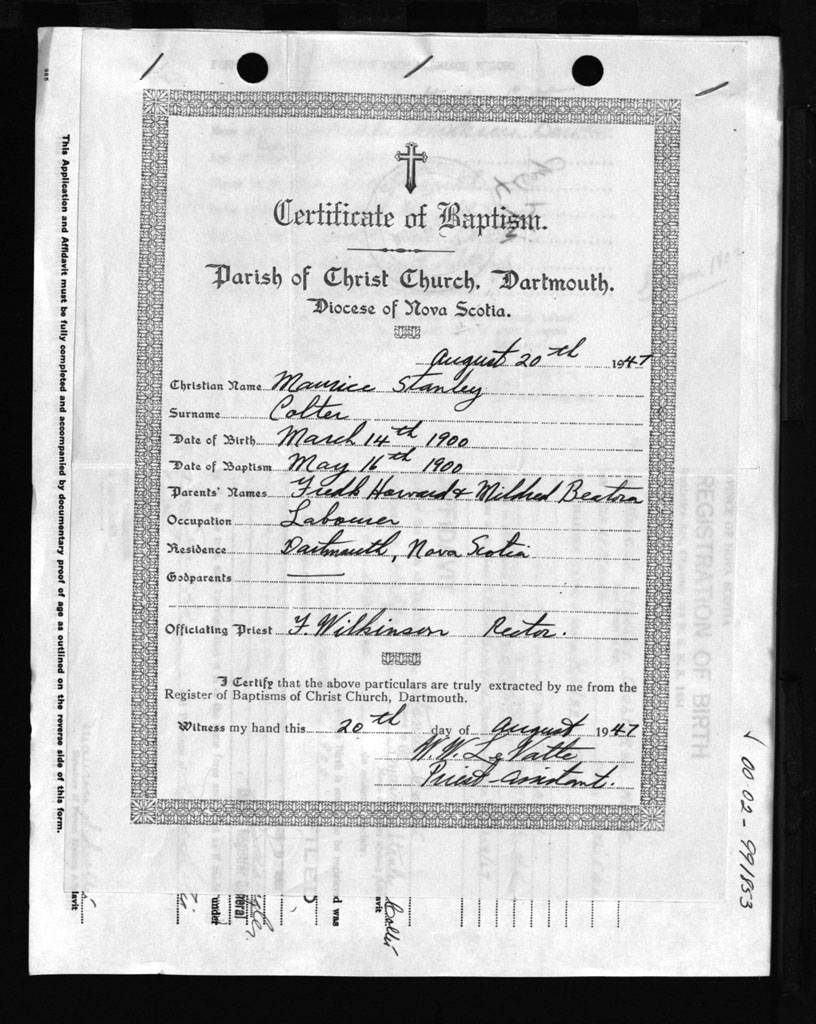 Certificate of Baptism.
Parish of Christ Church, Dartmouth.
Diocese of Nova Scotia.
August 20th 1947
Christian Name Maurice Stanley
Surname Colter
Date of Birth March 14th 1900
Date of Baptism May 16th 1900
Parents' Names Fredk Howard & Mildred Beatrice
Occupation Labourer
Residence Dartmouth, Nova Scotia
Godparents
Officiating Priest F. Wilkinson Rector.
I Certify that the above particulars are truly extracted by me from the
Register of Baptisms of Christ Church, Dartmouth.
Witness my hand this 20th day of August 1947
Priest-Assistant.
This Application and Affidavit must be fully completed and accompanied by documentary proof of age as outlined on the reverse side of this form.
REGISTRATION OF BIRTH
00 02-991853
under
d was
avit
Colter